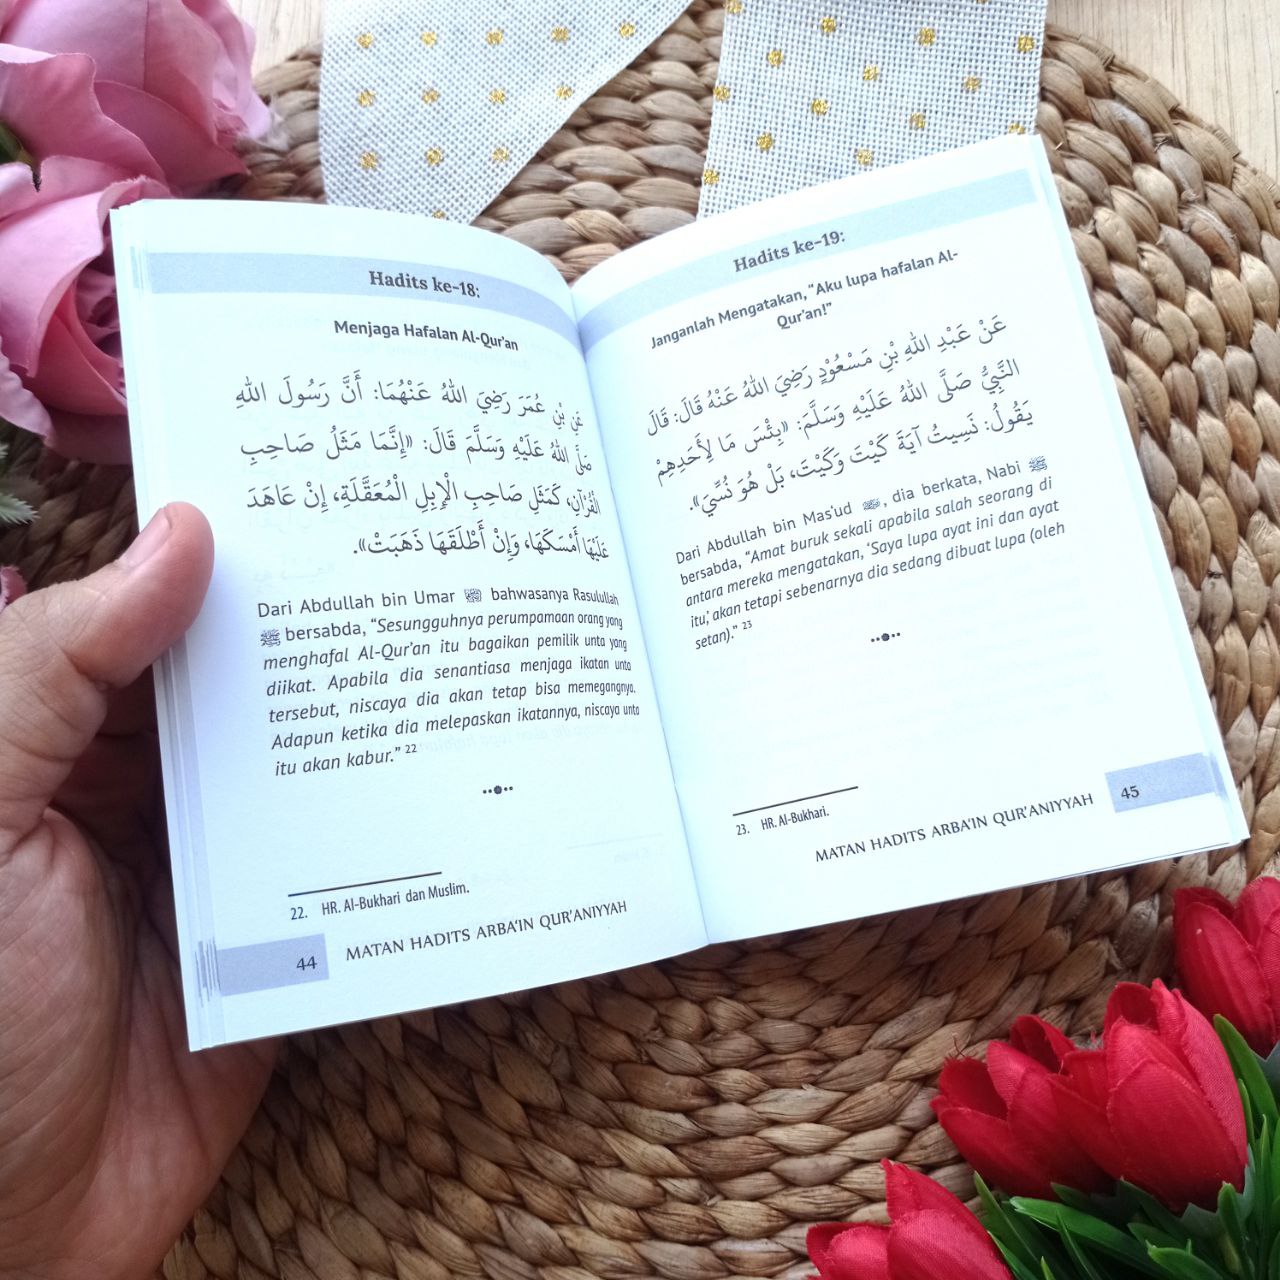 Hadits ke-18:
Menjaga Hafalan Al-Qur'an
عَنِ بْنِ عُمَرَ رَضِيَ اللهُ عَنْهُمَا: أَنَّ رَسُولَ اللهِ
صَلَّى اللهُ عَلَيْهِ وَسَلَّمَ قَالَ: «إِنَّمَا مَثَلُ صَاحِبِ
الْقُرْآنِ، كَمَثَلِ صَاحِبِ الْإِبِلِ الْمُعَقَّلَةِ، إِنْ عَاهَدَ
عَلَيْهَا أَمْسَكَهَا، وَإِنْ أَطْلَقَهَا ذَهَبَتْ».
Dari Abdullah bin Umar bahwasanya Rasulullah
ﷺ bersabda, "Sesungguhnya perumpamaan orang yang
menghafal Al-Qur'an itu bagaikan pemilik unta yang
diikat. Apabila dia senantiasa menjaga ikatan unta
tersebut, niscaya dia akan tetap bisa memegangnya.
Adapun ketika dia melepaskan ikatannya, niscaya unta
itu akan kabur." 22
22. HR. Al-Bukhari dan Muslim.
44 MATAN HADITS ARBA'IN QUR'ANIYYAH
Hadits ke-19:
Janganlah Mengatakan, "Aku lupa hafalan Al-
Qur'an!"
عَنْ عَبْدِ اللهِ بْنِ مَسْعُوْدٍ رَضِيَ اللهُ عَنْهُ قَالَ: قَالَ
النَّبِيُّ صَلَّى اللهُ عَلَيْهِ وَسَلَّمَ: «بِئْسَ مَا لِأَحَدِهِمْ
يَقُولُ: نَسِيتُ آيَةَ كَيْتَ وَكَيْتَ، بَلْ هُوَ نُسِّيَ».
Dari Abdullah bin Mas'ud , dia berkata, Nabi ﷺ
bersabda, "Amat buruk sekali apabila salah seorang di
antara mereka mengatakan, 'Saya lupa ayat ini dan ayat
itu,' akan tetapi sebenarnya dia sedang dibuat lupa (oleh
setan)." 23
23. HR. Al-Bukhari.
MATAN HADITS ARBA'IN QUR'ANIYYAH 45